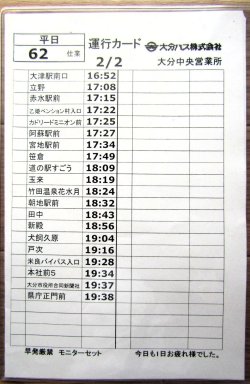 平日
62 仕業
運行カード 大分バス株式会社
2/2 大分中央営業所
大津駅南口 16:52
立野 17:08
赤水駅前 17:15
乙姫ペンション村入口 17:22
カドリードミニオン前 17:25
阿蘇駅前 17:27
宮地駅前 17:34
笹倉 17:49
道の駅すごう 18:09
玉来 18:19
竹田温泉花水月 18:24
朝地駅前 18:32
田中 18:43
新殿 18:56
犬飼久原 19:04
戸次 19:16
米良バイパス入口 19:28
本社前5 19:34
大分市役所合同新聞社 19:37
県庁正門前 19:38
早発厳禁 モニターセット 今日も1日お疲れ様でした。